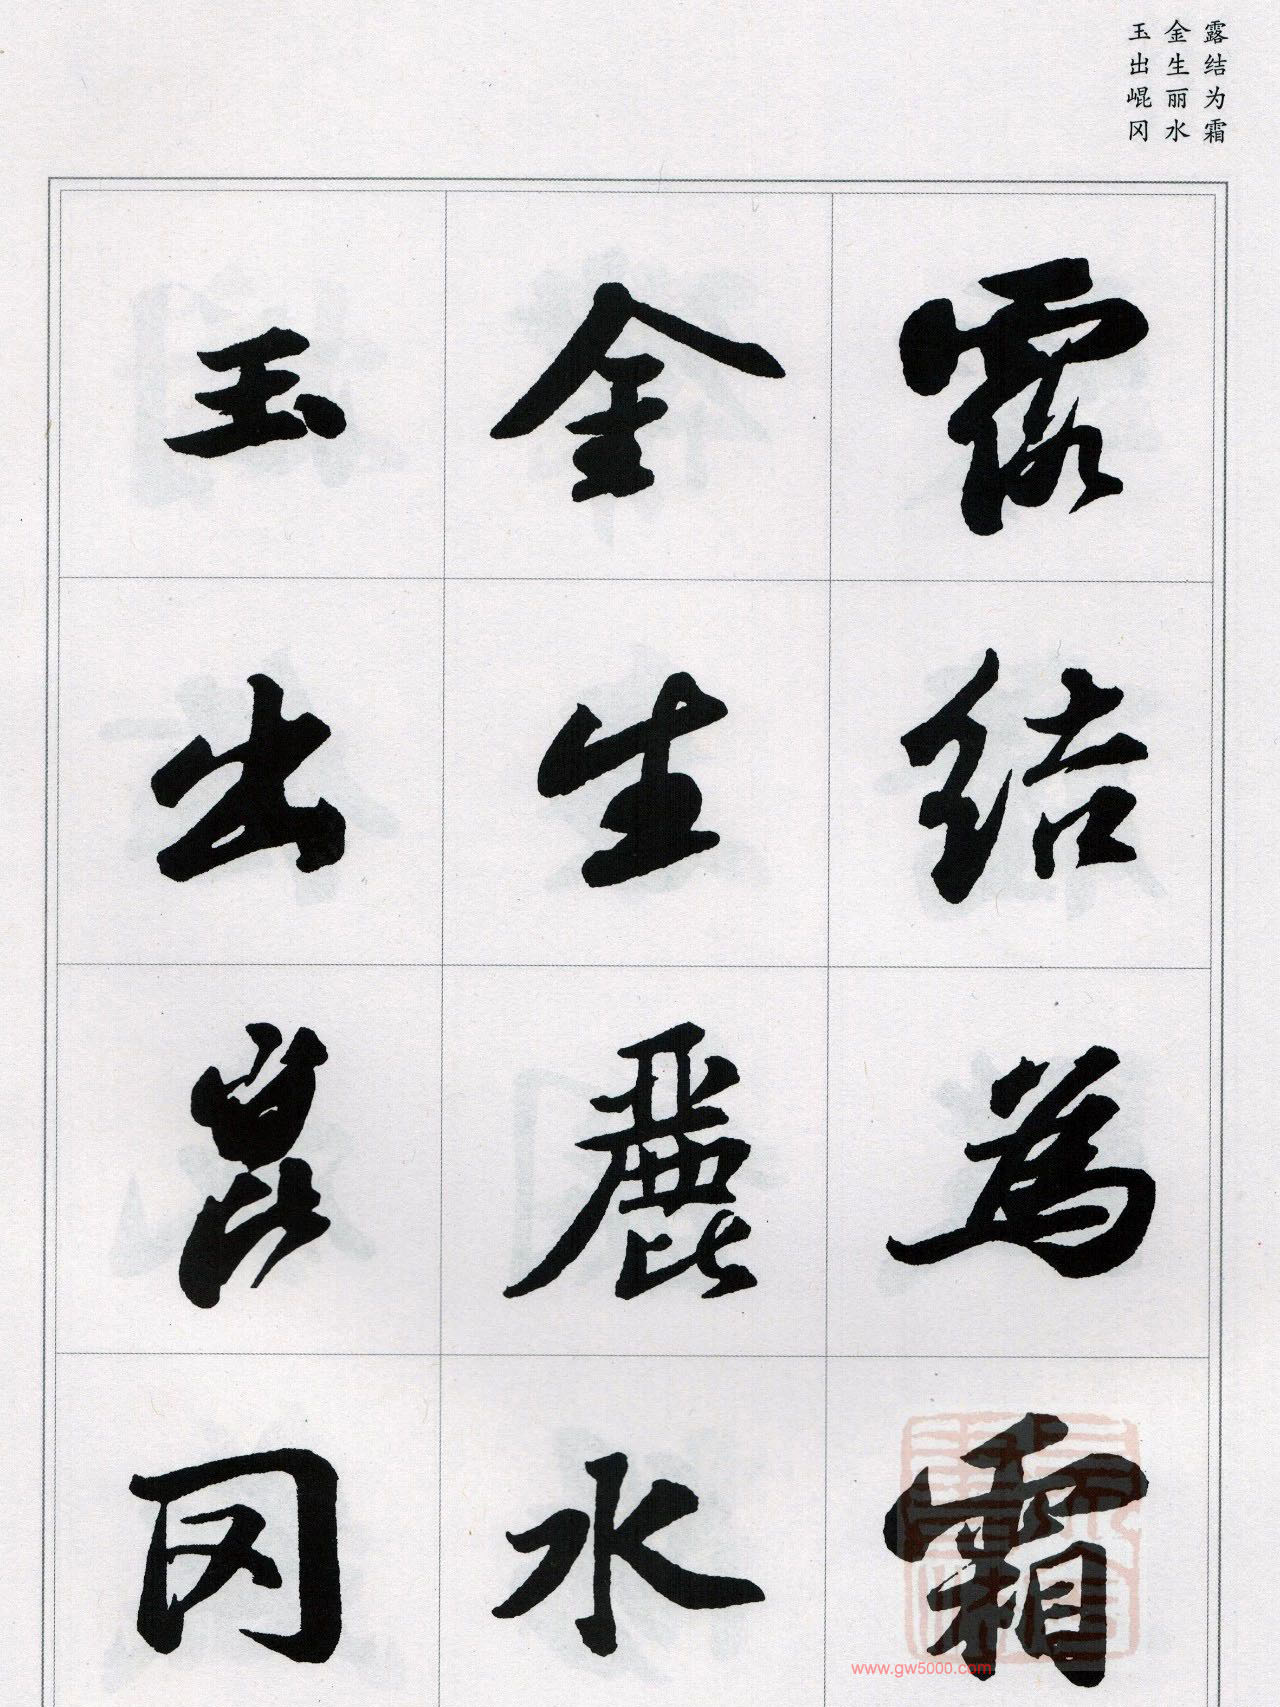 露结为霜
金生丽水
玉出崐冈
露结為霜
金生麗水
玉出崑冈
www.gw5000.com